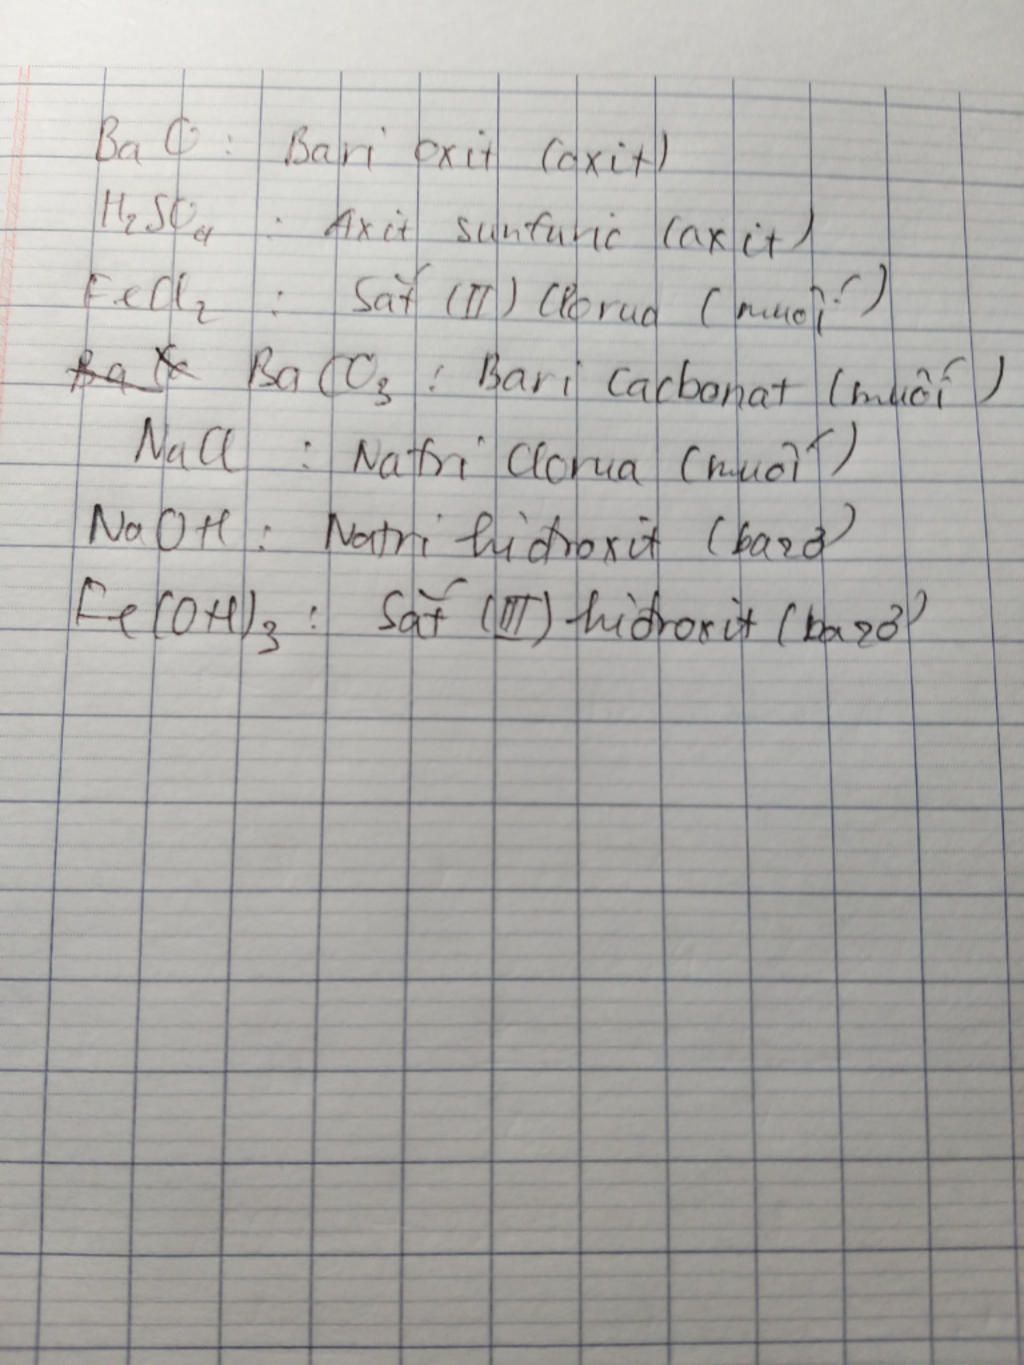 BaO : Bari oxit (oxit)
H₂SO₄ : Axit sunfuric (axit)
FeCl₂ : Sắt (II) Clorua (muối)
BaCO₃ : Bari Cacbonat (muối)
NaCl : Natri Clorua (muối)
NaOH : Natri hiđroxit (bazơ)
Fe(OH)₃ : Sắt (III) hiđroxit (bazơ)